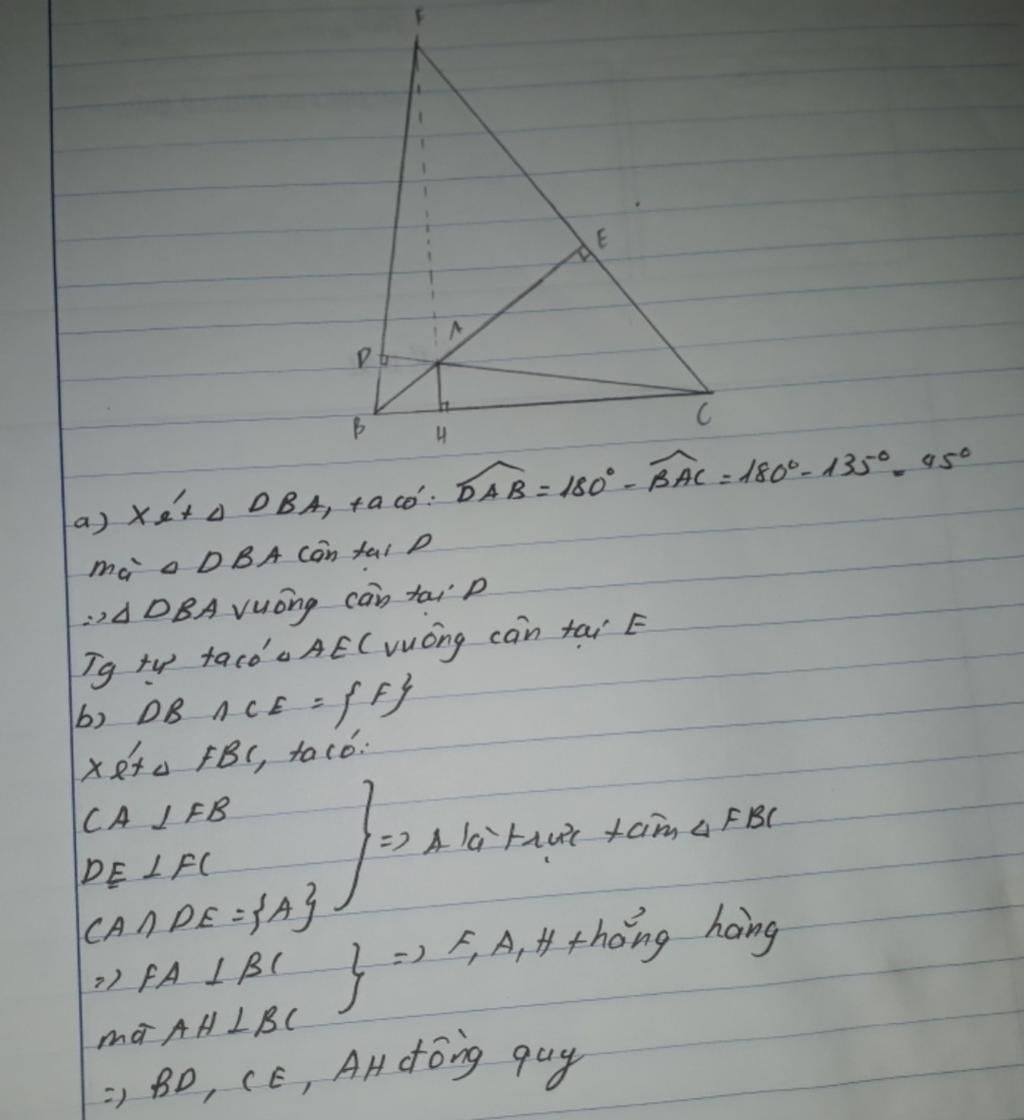 F
E
A
D
B
H
C
a) Xét Δ DBA, ta có: \widehat{DAB} = 180° - \widehat{BAC} = 180° - 135° = 45°
mà Δ DBA cân tại D
=> Δ DBA vuông cân tại D
Tg tự ta có Δ AEC vuông cân tại E
b) DB ∩ CE = {F}
Xét Δ FBC, ta có:
CA ⊥ FB
DE ⊥ FC
CA ∩ DE = {A} } => A là trực tâm Δ FBC
=> FA ⊥ BC
mà AH ⊥ BC } => F, A, H thẳng hàng
=> BD, CE, AH đồng quy